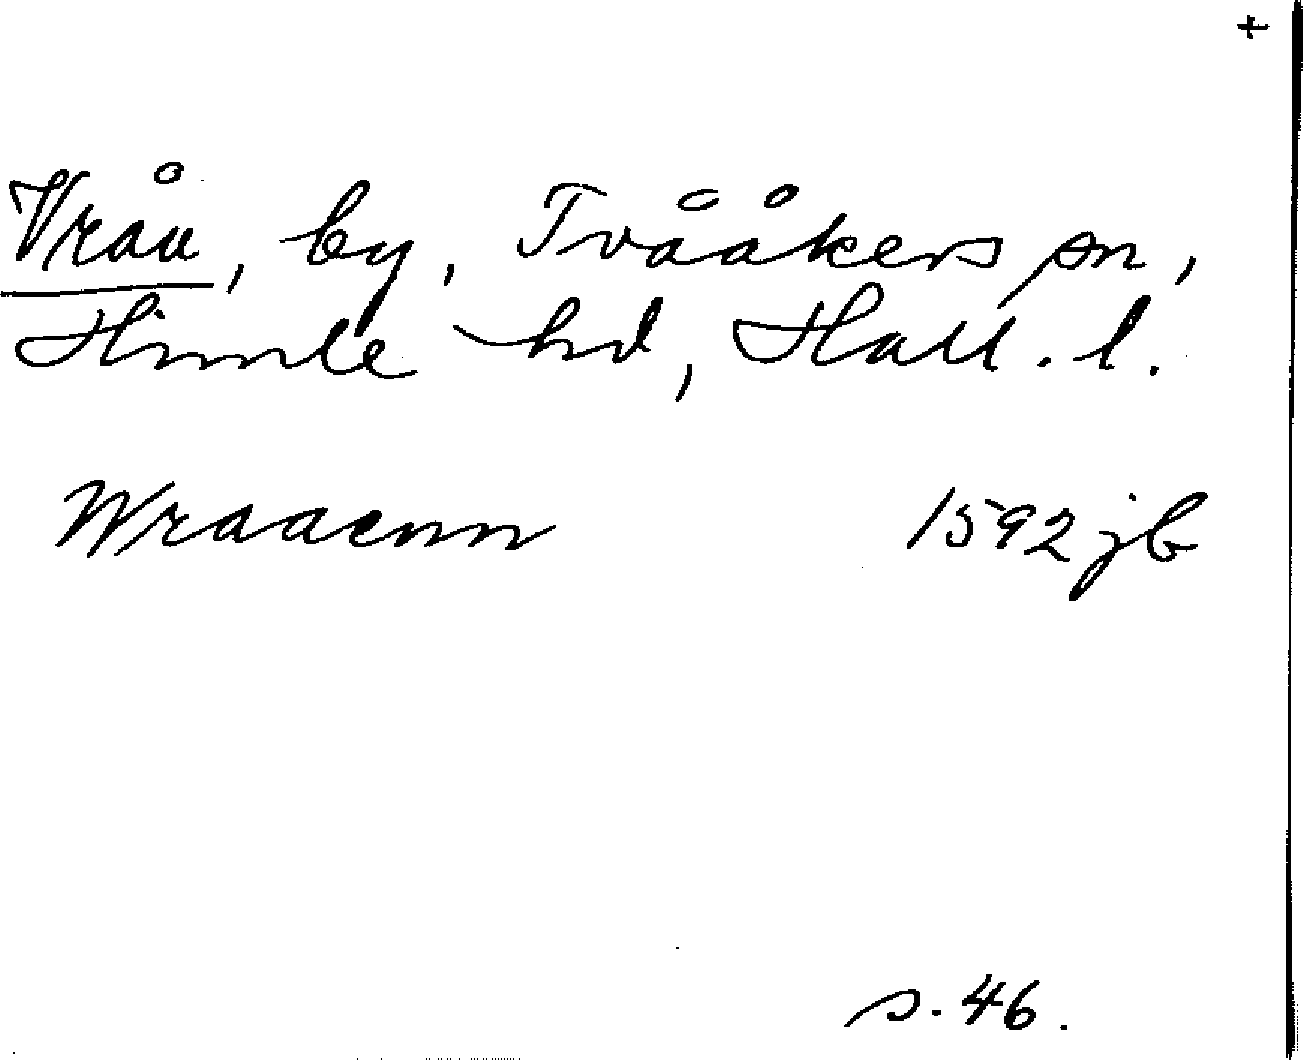 +
Vråu, by, Tvååkers sn,
Himle hd, Hall. l.
Wraaenn 1592 jb
s. 46.